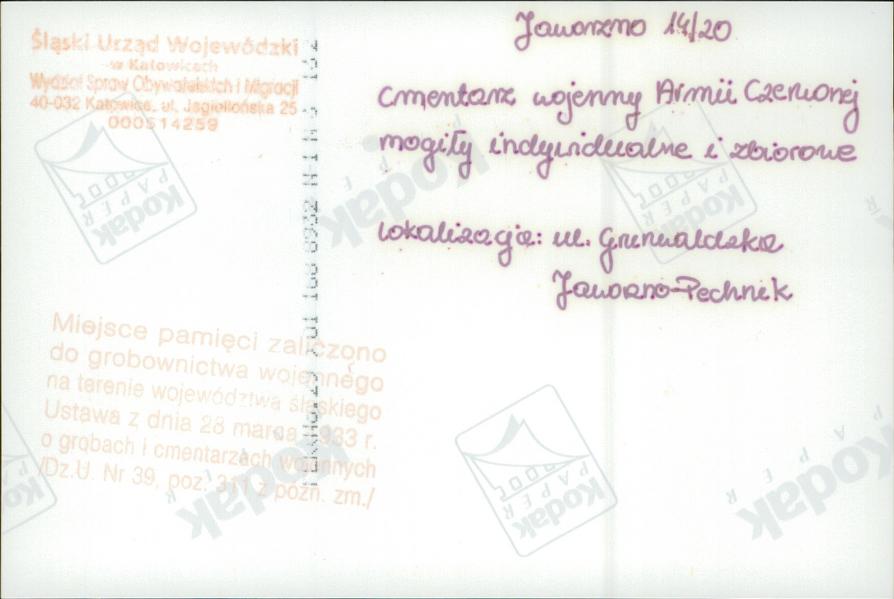 Jaworzno 14/20
Śląski Urząd Wojewódzki
w Katowicach
Wydział Spraw Obywatelskich i Migracji
40-032 Katowice, ul. Jagiellońska 25
000514259
cmentarz wojenny Armii Czerwonej
mogiły indywidualne i zbiorowe
lokalizacja: ul. Grunwaldzka
Jaworzno-Pechnik
Miejsce pamięci zaliczono
do grobownictwa wojennego
na terenie województwa śląskiego
Ustawa z dnia 28 marca 1933 r.
o grobach i cmentarzach wojennych
/Dz.U. Nr 39, poz. 311 z późn. zm./
Kodak
PAPER
Kodak
PAPER
Kodak
Kodak
PAPER
Kodak
Kodak
PAPER